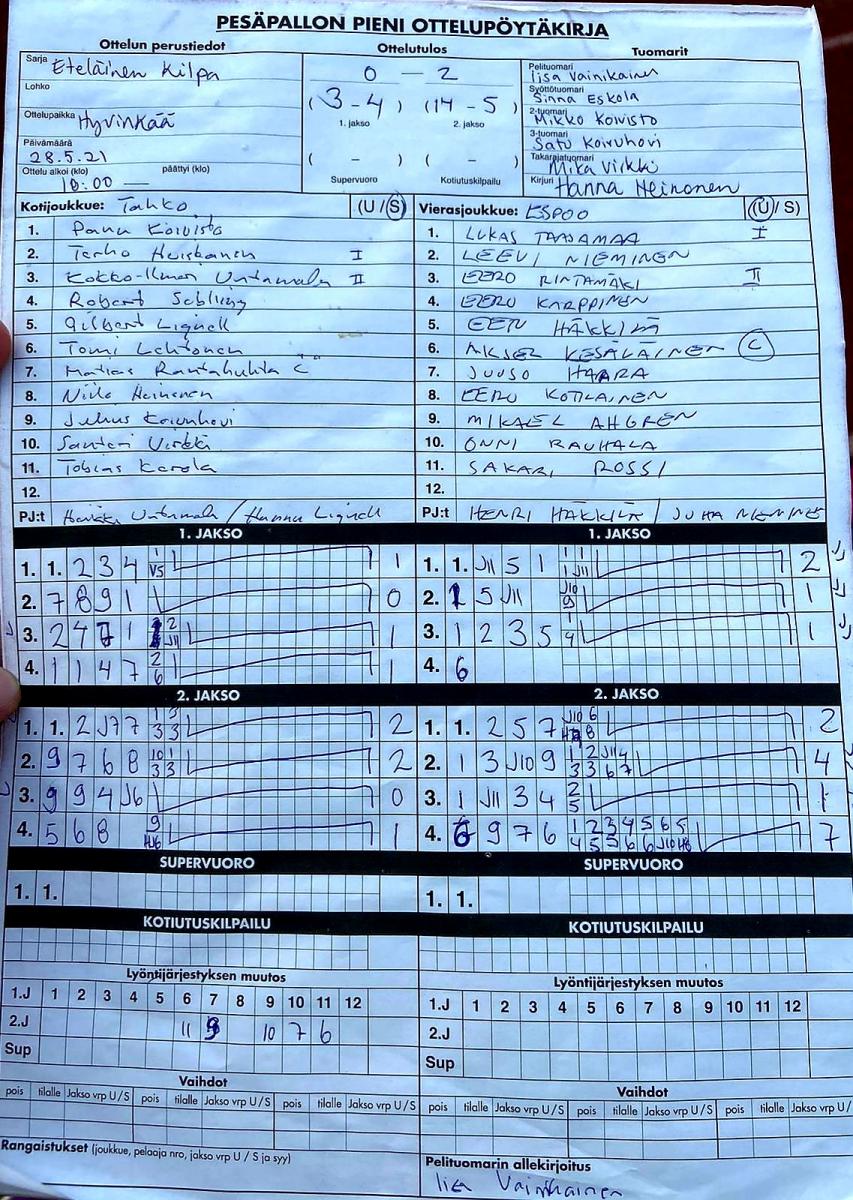 PESÄPALLON PIENI OTTELUPÖYTÄKIRJA
Ottelun perustiedot
Ottelutulos
Tuomarit
Sarja Eteläinen Kilpa
Lohko
Ottelupaikka Hyvinkää
Päivämäärä
28.5.21
Ottelu alkoi (klo) päättyi (klo)
10:00 —
0 – 2
(3 – 4) (14 – 5)
1. jakso 2. jakso
( – ) ( – )
Supervuoro Kotiutuskilpailu
Pelituomari
Iisa Vainikainen
Syöttötuomari
Sinna Eskola
2-tuomari
Mikko Koivisto
3-tuomari
Satu Koivuhovi
Takarajatuomari
Mika Virkki
Kirjuri Hanna Heinonen
Kotijoukkue: Tahko (U / S)
1. Panu Koivisto
2. Terho Huiskanen I
3. Kokko-Ilmari Untamala II
4. Robert Sebling
5. Gilbert Lignell
6. Tomi Lehtonen
7. Matias Rantahuhta C
8. Niilo Heinonen
9. Julius Koivuhovi
10. Santeri Virkki
11. Tobias Karola
12.
PJ:t Untamala / Hannu Lignell
Vierasjoukkue: ESPOO (U / S)
1. LUKAS TAASAMAA I
2. LEEVI NIEMINEN
3. EERO RINTAMÄKI II
4. EERO KARPPINEN
5. EERI HÄKKILÄ
6. AKSEL KESÄLÄINEN C
7. JUUSO HAARA
8. EERO KOTILAINEN
9. MIKAEL AHGREN
10. ONNI RAUHALA
11. SAKARI ROSSI
12.
PJ:t HENRI HÄKKILÄ / JUHA NIEMINEN
1. JAKSO
1. 1. 2 3 4 1 V5 1
2. 7 8 9 1 0
3. 2 4 7 1 2 J11 1
4. 1 1 4 7 2 6 1
1. JAKSO
1. 1. J11 5 1 1 1 1 J11 2
2. 1 5 J11 J10 9 1
3. 1 2 3 5 1 4 1
4. 6
2. JAKSO
1. 1. 2 J7 7 1 3 3 3 2
2. 9 7 6 8 10 1 3 3 2
3. 9 9 4 J6 0
4. 5 6 8 9 1
2. JAKSO
1. 1. 2 5 7 J10 6 8 2
2. 1 3 J10 9 1 2 J11 4 3 3 6 7 4
3. 1 J11 3 4 2 5 1
4. 6 9 7 6 1 2 3 4 5 6 5 4 5 5 6 6 J10 H8 7
SUPERVUORO
1. 1.
SUPERVUORO
1. 1.
KOTIUTUSKILPAILU
KOTIUTUSKILPAILU
Lyöntijärjestyksen muutos
1.J 1 2 3 4 5 6 7 8 9 10 11 12
2.J 11 9 10 7 6
Sup
Lyöntijärjestyksen muutos
1.J 1 2 3 4 5 6 7 8 9 10 11 12
2.J
Sup
Vaihdot
pois tilalle Jakso vrp U/S pois tilalle Jakso vrp U/S pois tilalle Jakso vrp U/S
Vaihdot
pois tilalle Jakso vrp U/S pois tilalle Jakso vrp U/S pois tilalle Jakso vrp U/
Rangaistukset (joukkue, pelaaja nro, jakso vrp U / S ja syy)
Pelituomarin allekirjoitus
Iisa Vainikainen